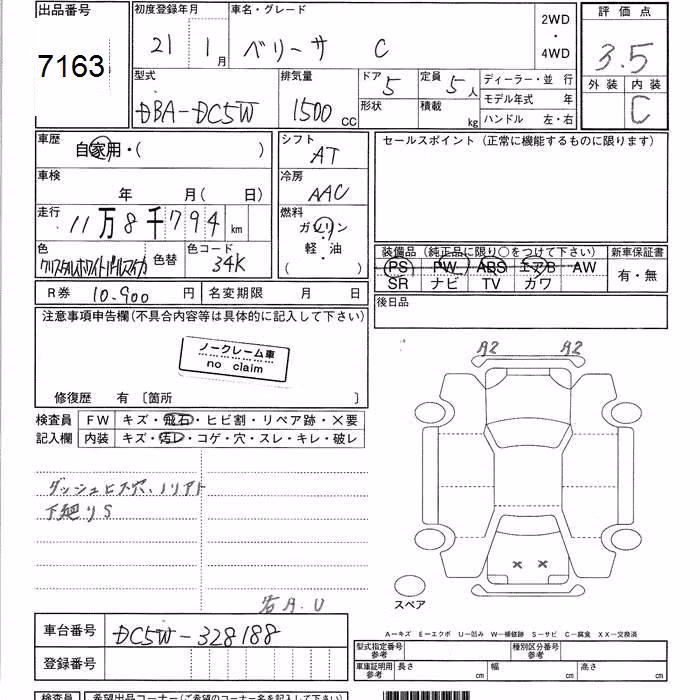 出品番号
7163
初度登録年月
21 1月
車名・グレード
ベリーサ C
2WD
・
4WD
評価点
3.5
外装 内装
C
型式
DBA-DC5W
排気量
1500 CC
ドア 5
形状
定員 5人
積載 kg
ディーラー・並 行
モデル年式 年
ハンドル 左・右
車歴
自家用・( )
シフト
AT
セールスポイント (正常に機能するものに限ります)
車検
年 月( 日)
冷房
AAC
走行
11万8千794km
燃料
ガソリン
軽・油
( )
色
クリスタルホワイトパールマイカ
色替
色コード
34K
装備品 (純正品に限り○をつけて下さい)
PS PW ABS エアB AW
SR ナビ TV カワ
新車保証書
有・無
R券 10.900 円
名変期限 月 日
後日品
注意事項申告欄(不具合内容等は具体的に記入して下さい)
ノークレーム車
no claim
修復歴 有 〔箇所 〕
検査員
記入欄
FW キズ・飛石・ヒビ割・リペア跡・×要
内装 キズ・汚レ・コゲ・穴・スレ・キレ・破レ
ダッシュビス穴、ノリアト
下廻りS
各A.U
A2 A2
× ×
スペア
A-キズ E-エクボ U-凹み W-補修跡 S-サビ C-腐食 XX-交換済
車台番号
DC5W-328188
登録番号
型式指定番号
参考
種別区分番号
参考
車庫証明用
参考
長さ cm
幅 cm
高さ cm
検査員
希望出品コーナー(ご希望のコーナー名を記入下さい)